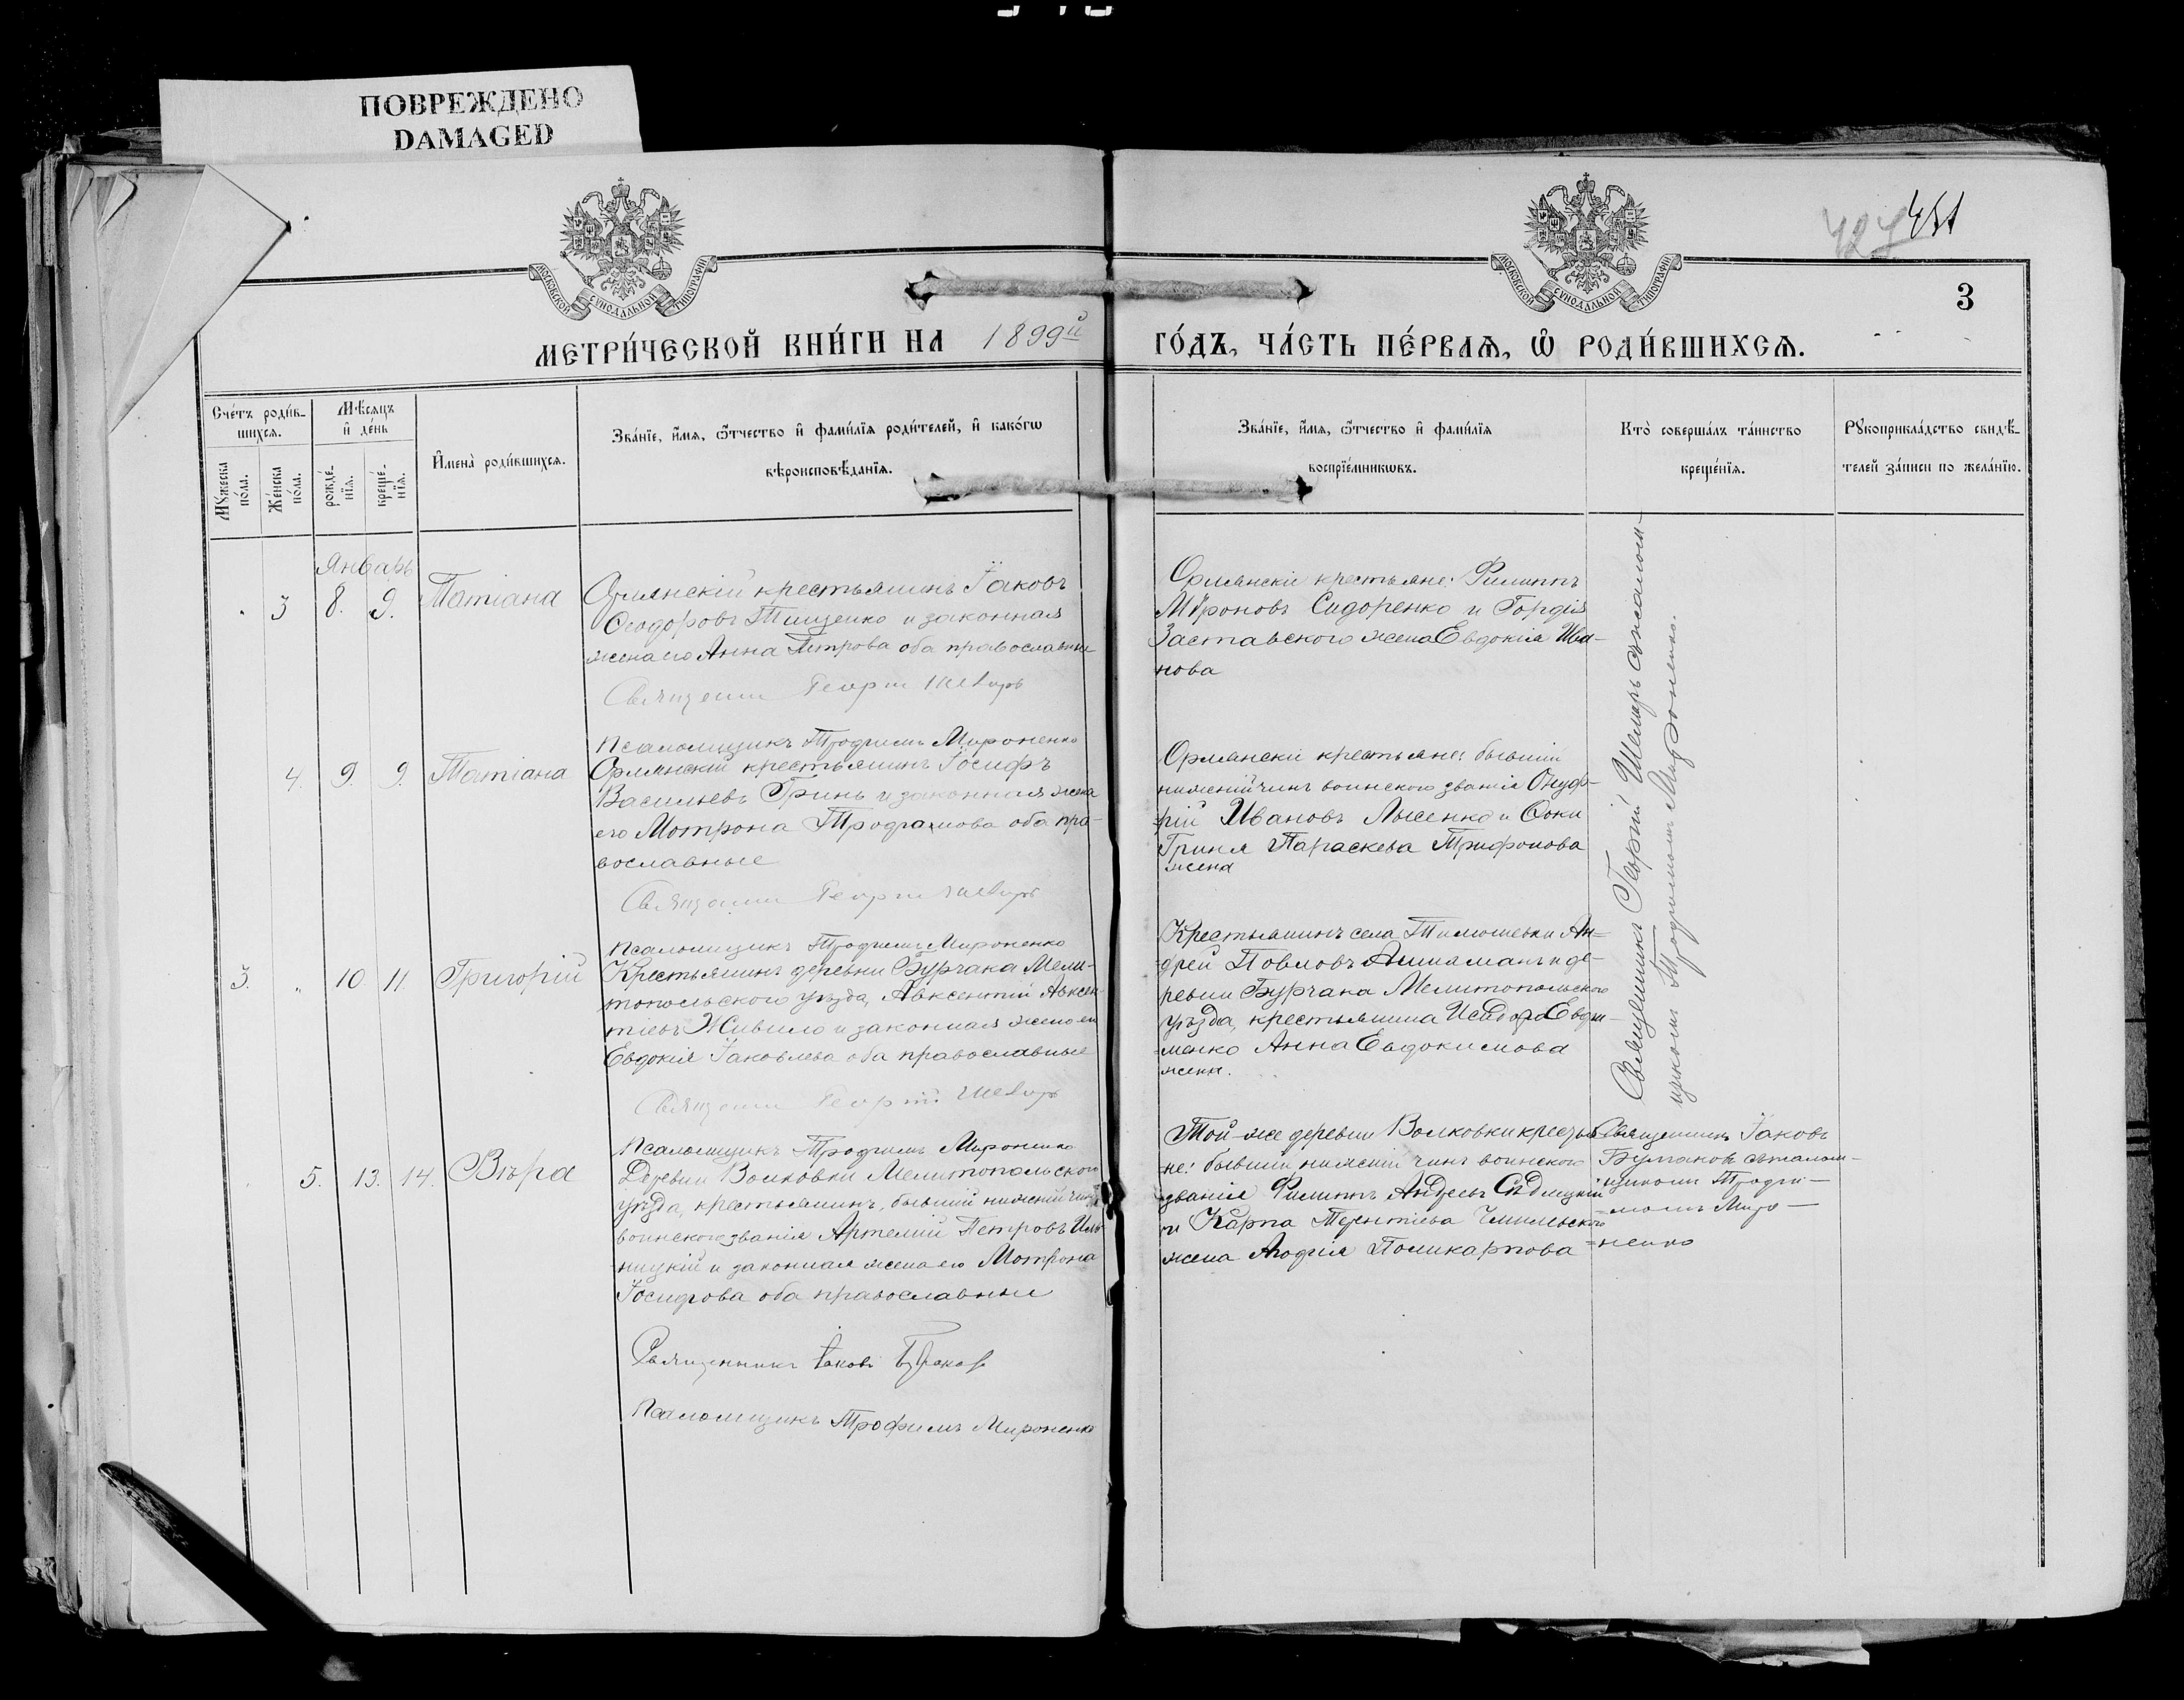 ПОВРЕЖДЕНО
DAMAGED
МОСКОВСКОЙ СѴНОДАЛЬНОЙ ТИПОГРАФІИ
МОСКОВСКОЙ СѴНОДАЛЬНОЙ ТИПОГРАФІИ
3
МЕТРИ́ЧЕСКОЙ КНИ́ГИ НА 1899й
ГО́ДЪ, ЧА́СТЬ ПЕ́РВАѦ, Ѡ РОДИ́ВШИХСѦ.
Сче́тъ роди́в-
шихсѧ.
Мꙋжеска по́ла.
Же́нска по́ла.
Мѣ́сѧцъ и҆ де́нь
рожде́-нїѧ.
креще́-нїѧ.
И҆мена̀ роди́вшихсѧ.
Зва́нїе, и҆́мѧ, ѻ҆́тчество и҆ фами́лїѧ роди́телей, и҆ како́гѡ
вѣроисповѣ́данїѧ.
Зва́нїе, и҆́мѧ, ѻ҆́тчество и҆ фами́лїѧ
воспрїе́мникѡвъ.
Кто̀ соверша́лъ та́инство
креще́нїѧ.
Рꙋкоприкла́дство свидѣ́-
телей за́писи по жела́нїю.
Январь
3 8. 9. Татіана
Орлянскій крестьянинъ Іаковъ
Ѳеодоровъ Тищенко и законная
жена его Анна Петрова оба православные
Священ Георгій Шевцъ
Псаломщикъ Трофимъ Мироненко
Орлянскіе крестьяне: Филиппъ
Мѵроновъ Сидоренко и Гордія
Заставского жена Евдокія Ива-
нова
4. 9. 9. Татіана
Орлянскій крестьянинъ Іосифъ
Васильевъ Гринь и законная жена
его Мотрона Трофимова оба пра-
вославные
Псаломщикъ Трофимъ Мироненко
Орлянскіе крестьяне: бывшій
нижній чинъ воинского званія Онуф-
рій Ивановъ Лысенко и Ѳоки
Гриня Параскева Трифонова
жена
3. " 10 11. Григорій
Крестьянинъ деревни Бурчака Мели-
топольского уѣзда, Авксентій Авксен
тіевъ Живило и законная жена его
Евдокія Іаковлева оба православные
Псаломщикъ Трофимъ Мироненко
Крестьянинъ села Тимошевки Ан-
дрей Павловъ и де-
ревни Бурчака Мелитопольского
уѣзда, крестьянина Исидора Евфи-
менко Анна Евдокимова
жена.
Священникъ Георгій съ псалом-
щикомъ Трофимомъ Мироненко.
5. 13. 14. Вѣра
Деревни Волковки Мелитопольского
уѣзда, крестьянинъ, бывшій нижній чинъ
воинского званія Артемій Петровъ Иль-
ницкій и законная жена его Мотрона
Іосифова оба православные
Священникъ Іаковъ
Псаломщикъ Трофимъ Мироненко
Той-же деревни Волковки крестья
не: бывшій нижній чинъ воинского
званія Филиппъ Андреевъ Сѣдлецкій
и Карпа Терентіева
жена Агафія Поликарпова
Священникъ Іаковъ
съ псалом-
щикомъ Трофи-
момъ Миро-
ненко